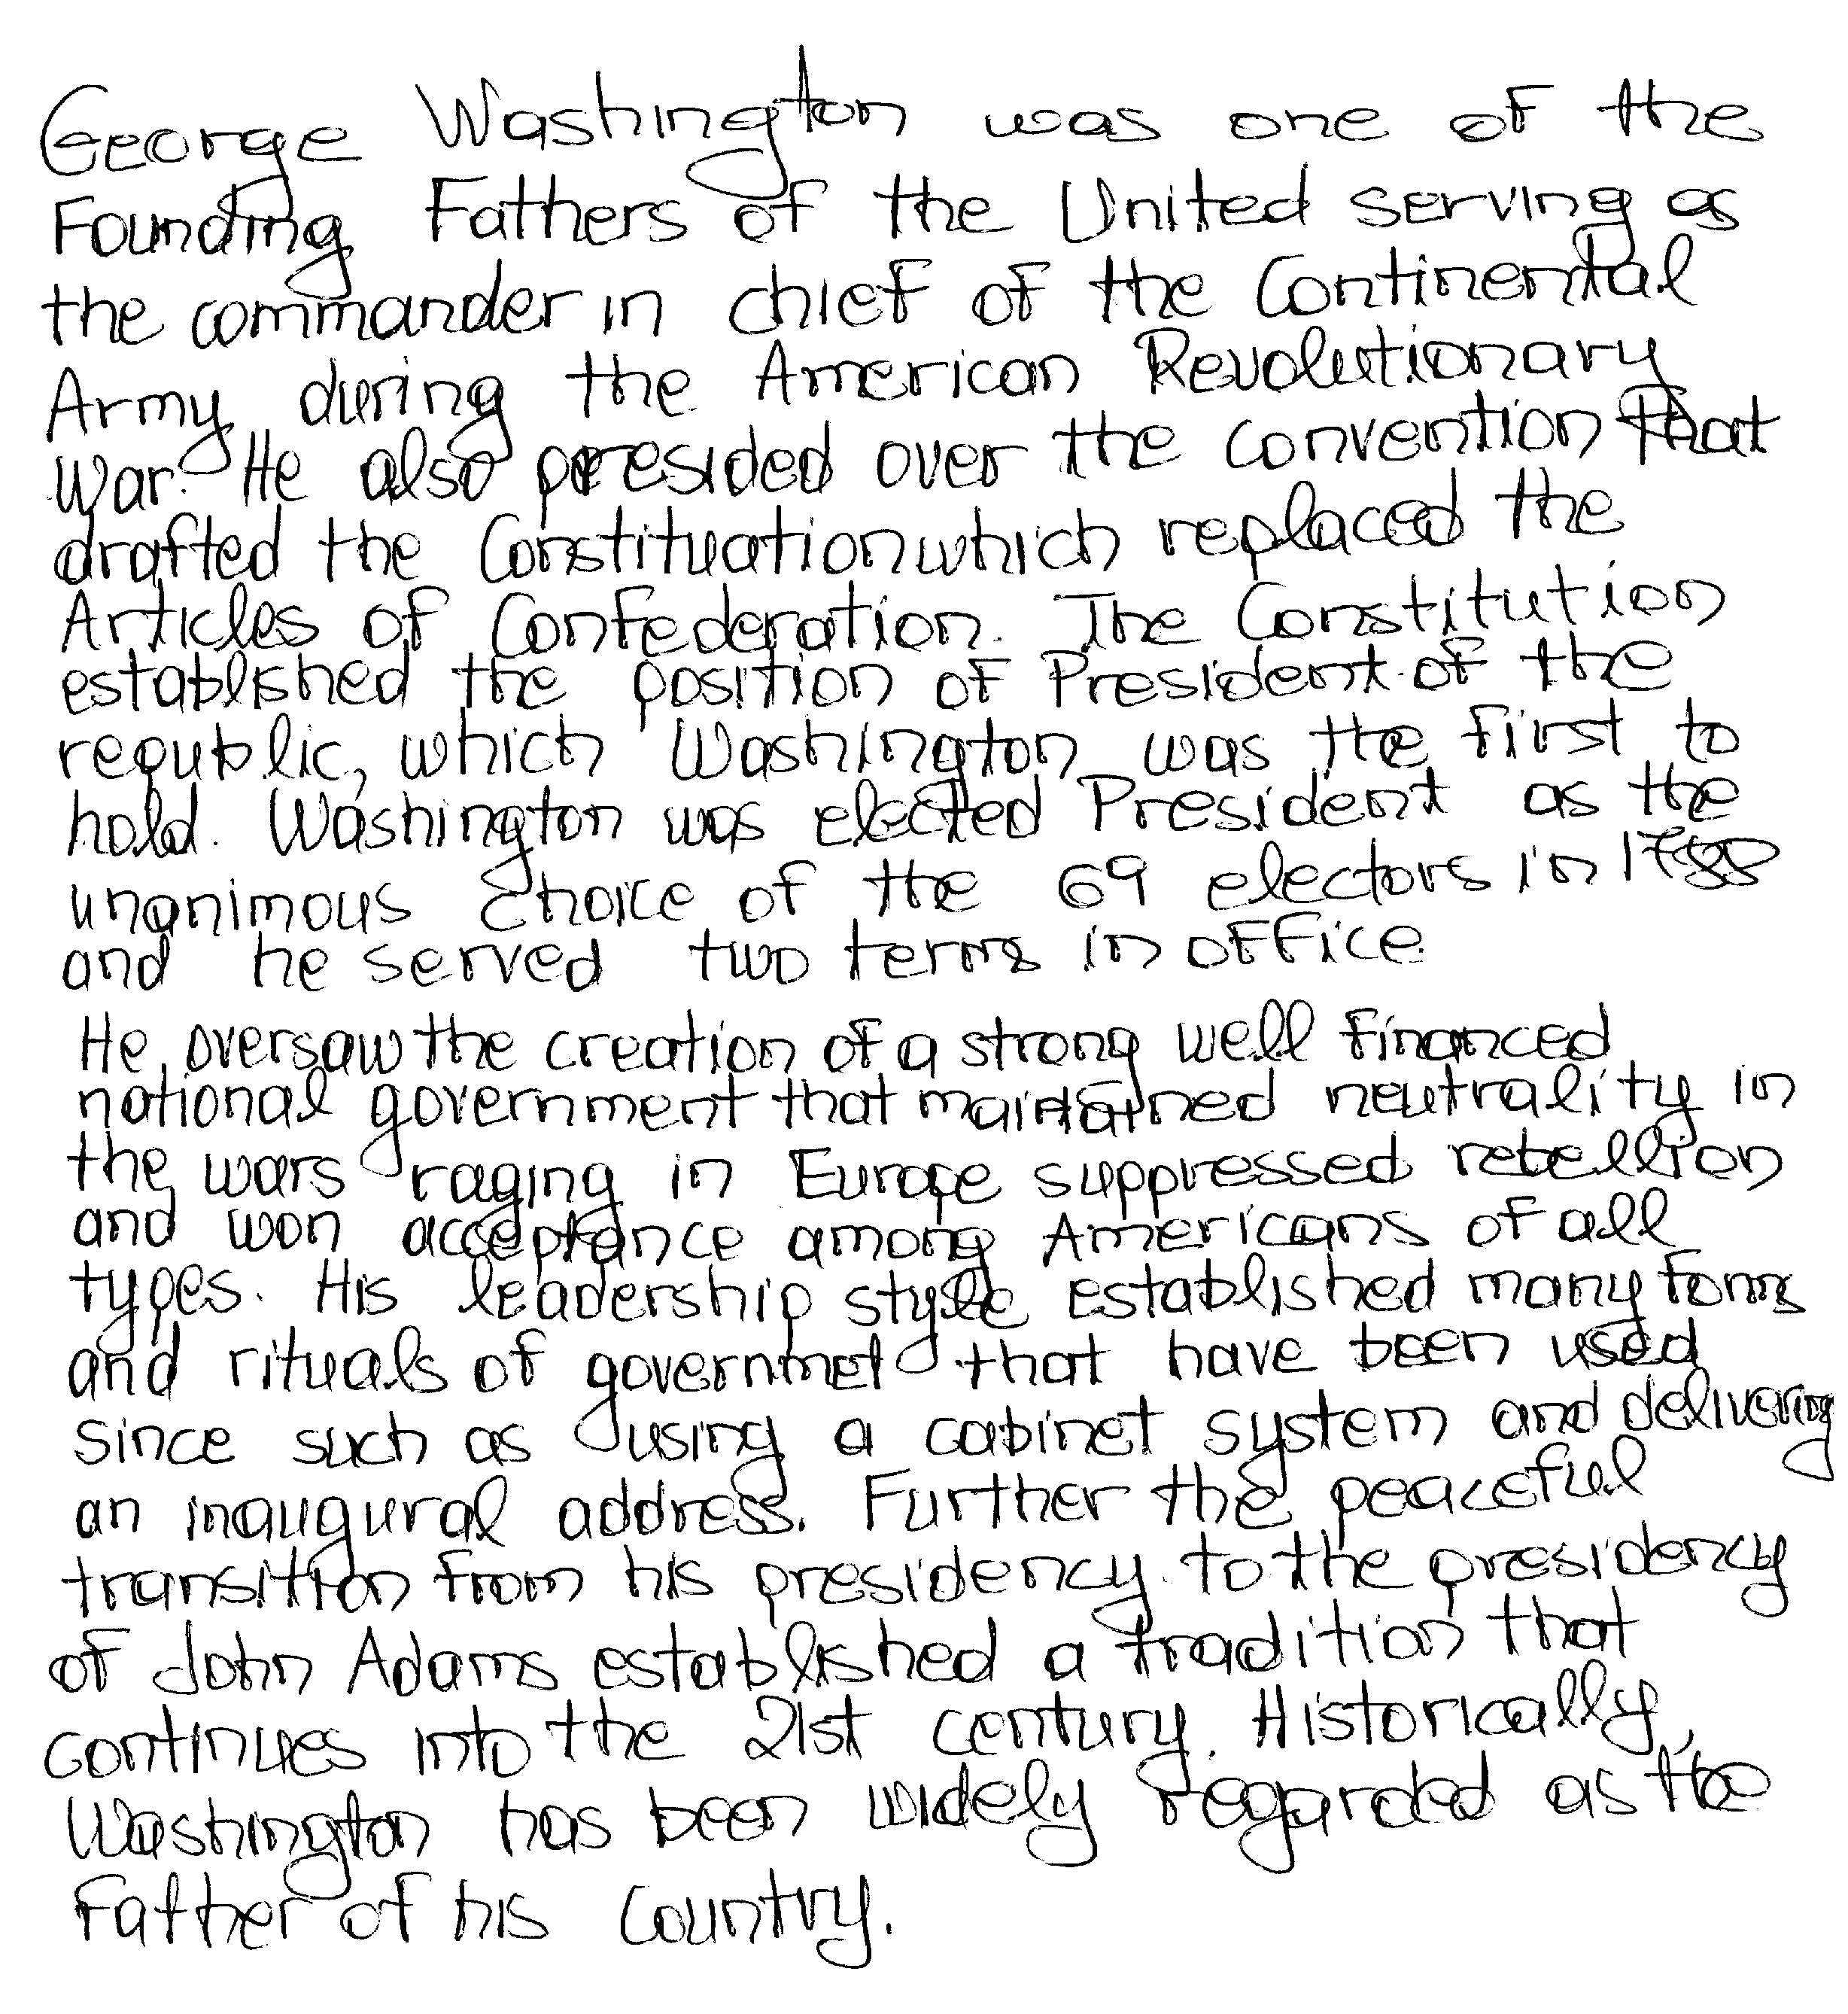 George Washington was one of the
Founding Fathers of the United serving as
the commander in chief of the Continental
Army during the American Revolutionary
War. He also presided over the convention that
drafted the Constituation which replaced the
Articles of Confederation. The Constitution
established the position of President of the
republic, which Washington was the first to
hold. Washington was elected President as the
unanimous choice of the 69 electors in 1788
and he served two terms in office.
He oversaw the creation of a strong well financed
national government that maintained neutrality in
the wars raging in Europe suppressed rebellion
and won acceptance among Americans of all
types. His leadership style established many forms
and rituals of governmet that have been used
since such as using a cabinet system and delivering
an inaugural address. Further the peaceful
transition from his presidency to the presidency
of John Adams established a tradition that
continues into the 21st century. Historically,
Washington has been widely regarded as the
Father of his country.